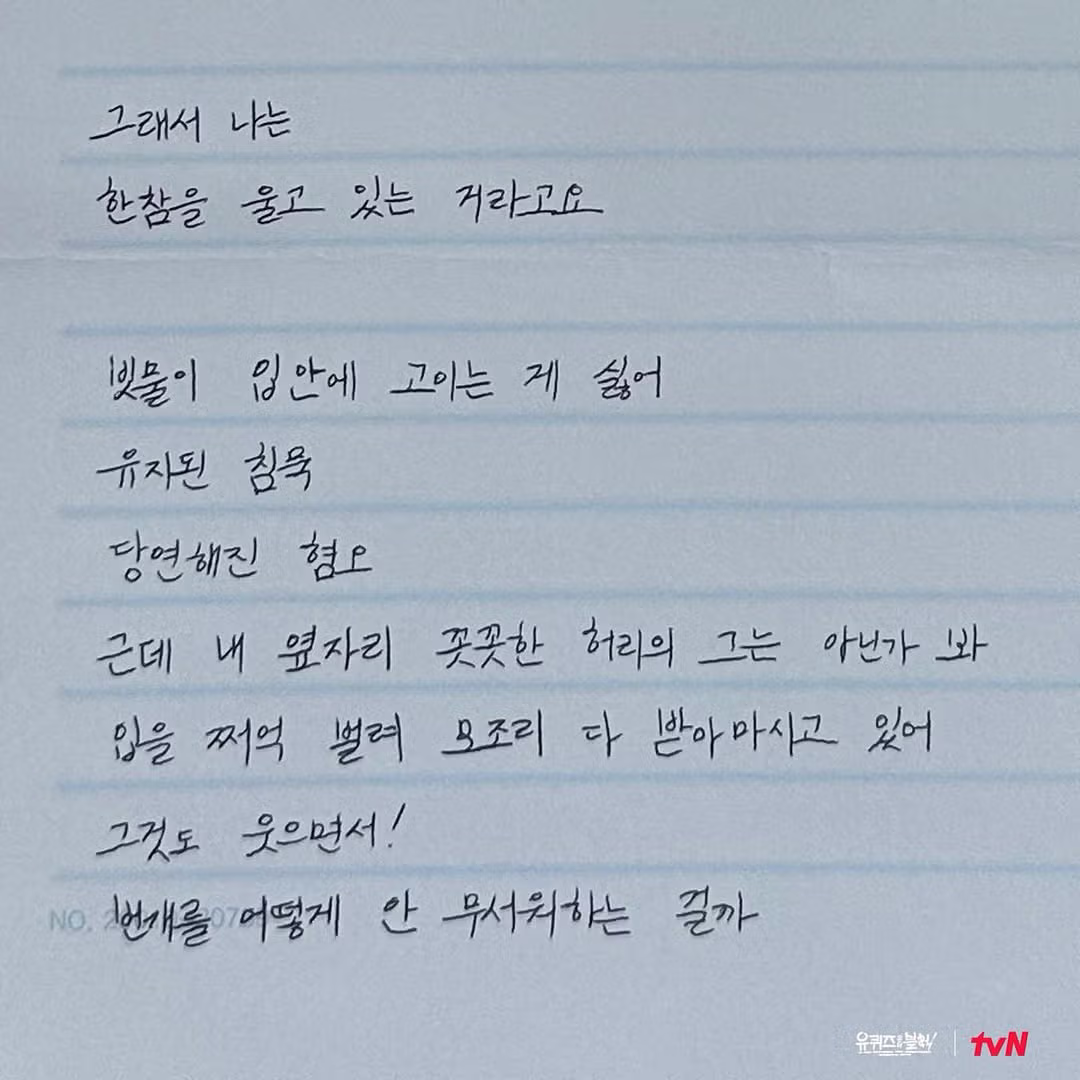 그래서 나는
한참을 울고 있는 거라고요
빗물이 입안에 고이는 게 싫어
유지된 침묵
당연해진 혐오
근데 내 옆자리 꼿꼿한 허리의 그는 아닌가 봐
입을 쩌억 벌려 모조리 다 받아마시고 있어
그것도 웃으면서!
번개를 어떻게 안 무서워하는 걸까
NO.
유퀴즈 온 더 블럭! | tvN